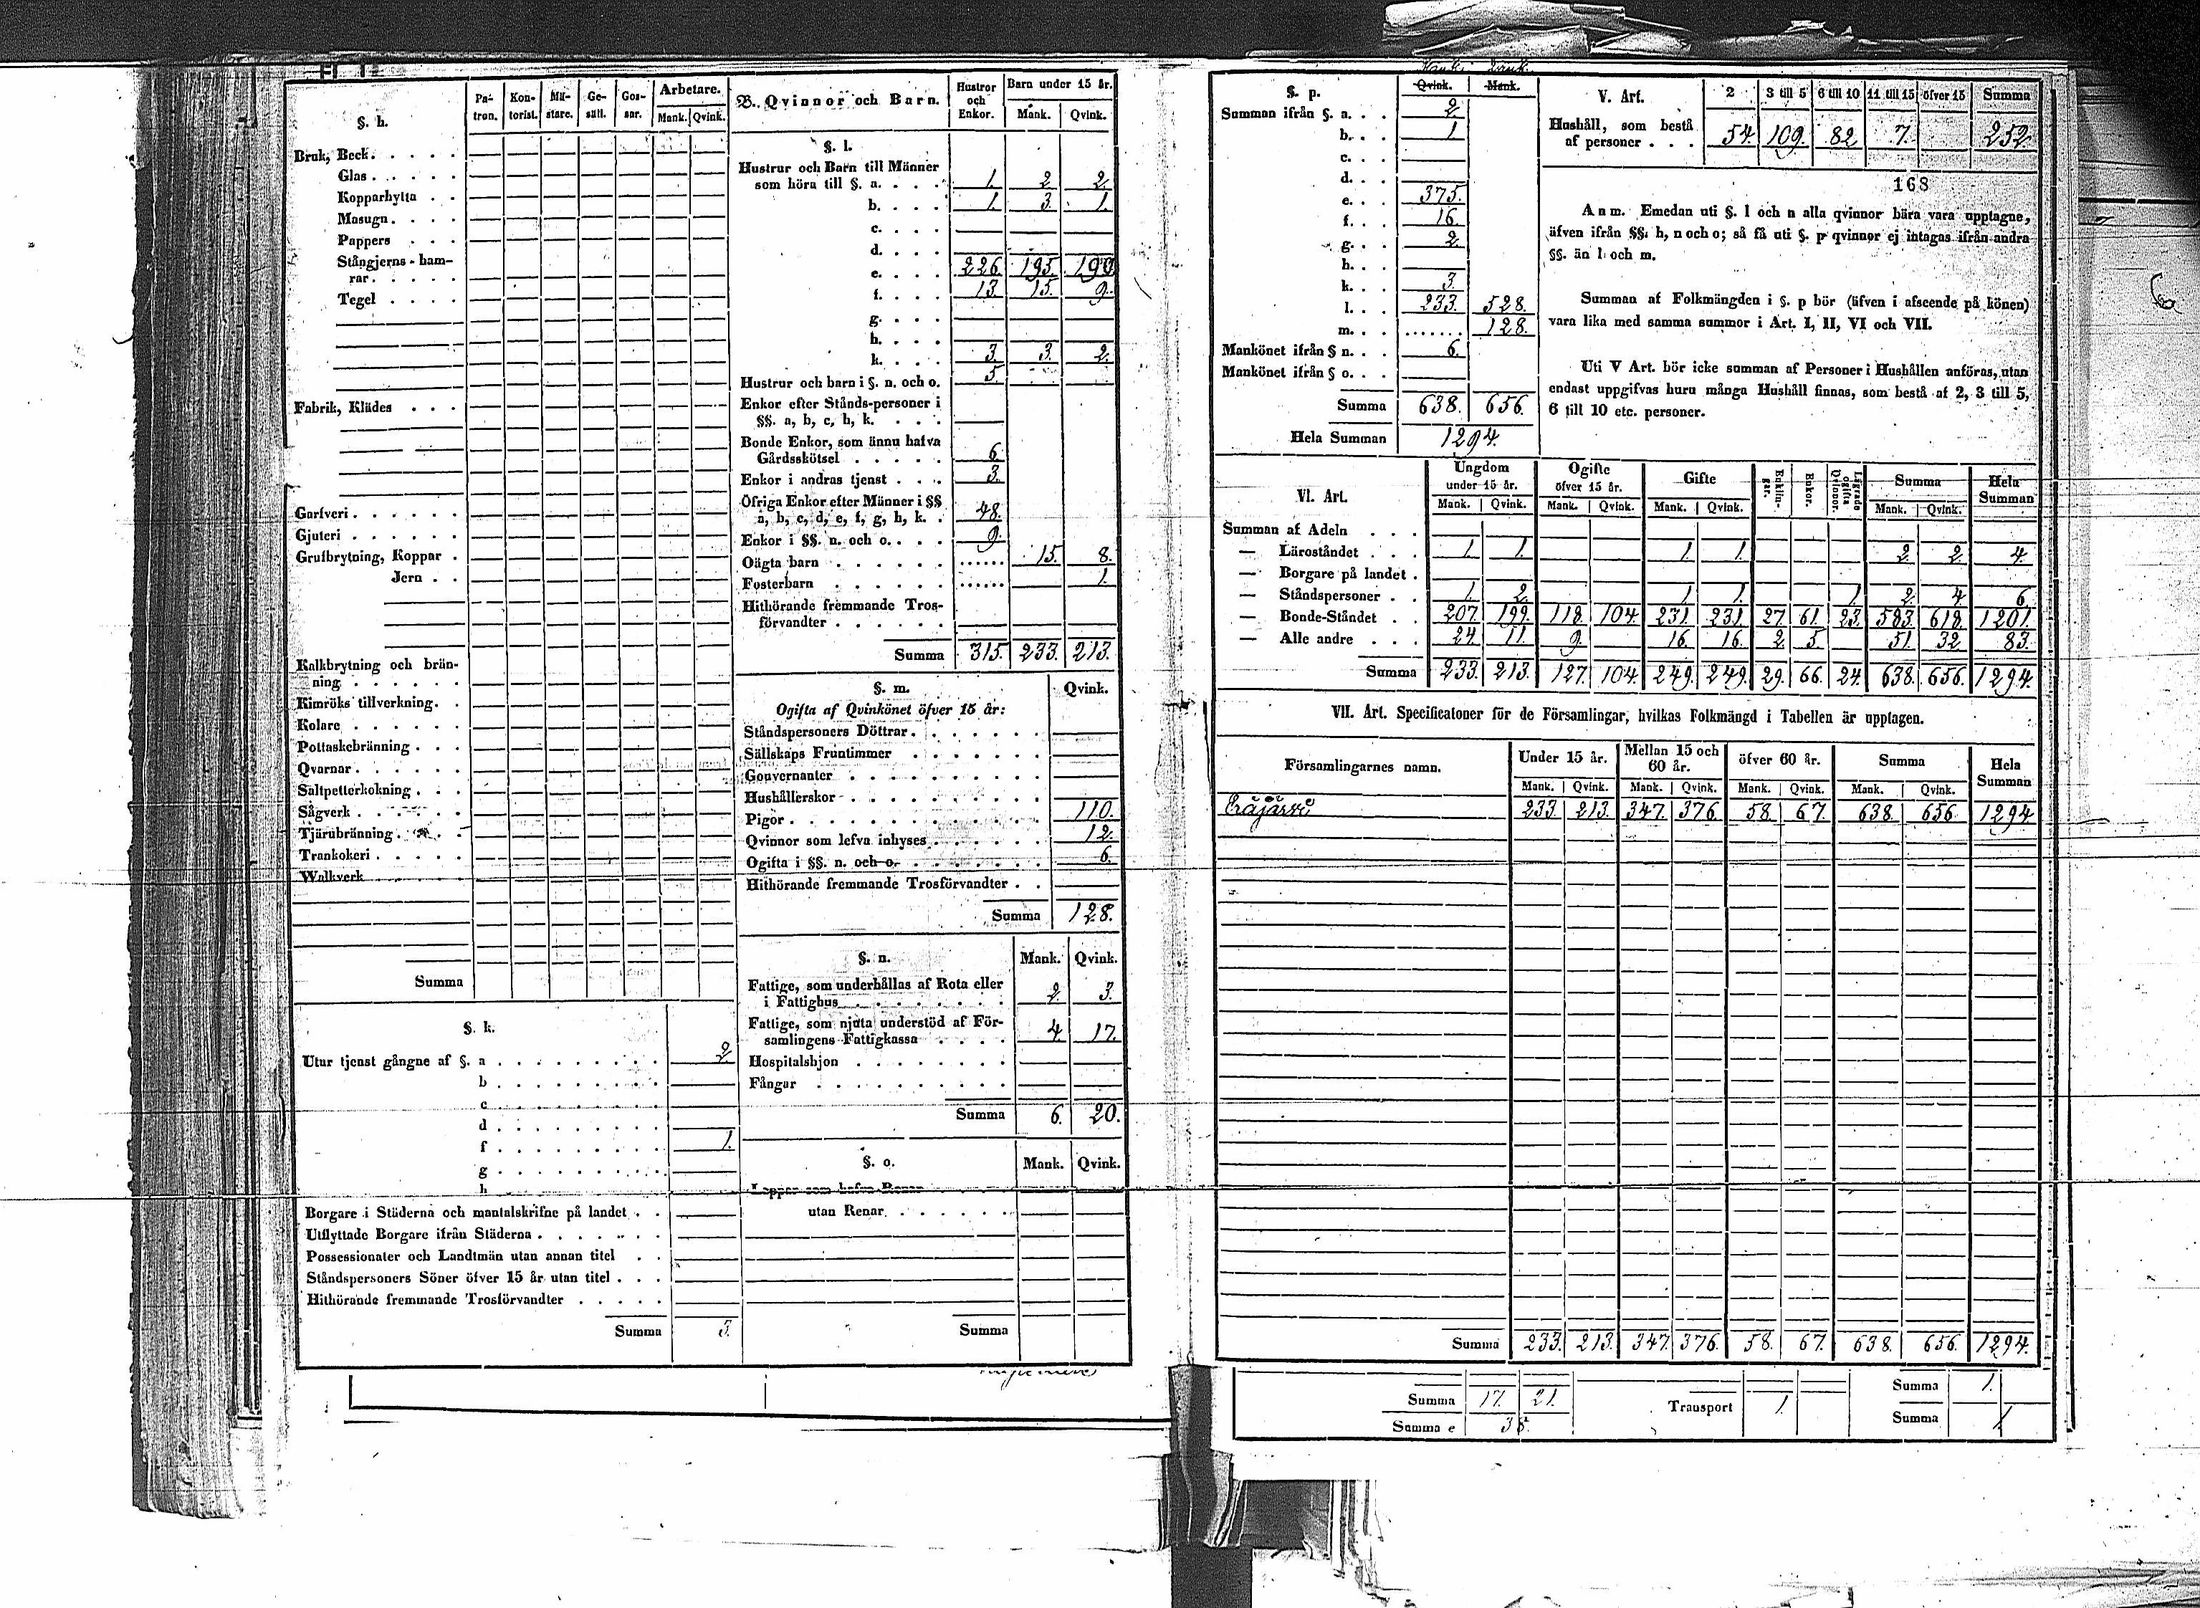 §. h.
Pa-tron. Kon-torist. Mä-stare. Ge-säll. Gos-sar. Arbetare. Mank. Qvink.
Bruk, Beck
Glas
Kopparhytta
Masugn
Pappers
Stångjerns-ham-
rar
Tegel
Fabrik, Klädes
Garfveri
Gjuteri
Grufbrytning, Koppar
Jern
Kalkbrytning och brän-
ning
Kimröks tillverkning
Kolare
Pottaskebränning
Qvarnar
Saltpetterkokning
Sågverk
Tjärubränning
Trankokeri
Walkverk
Summa
§. k.
Utur tjenst gångne af §. a 2
b
c
d
f 1.
g
h
Borgare i Städerna och mantalskrifne på landet
Utflyttade Borgare ifrån Städerna
Possessionater och Landtmän utan annan titel
Ståndspersoners Söner öfver 15 år utan titel
Hithörande fremmande Trosförvandter
Summa 3.
B. Qvinnor och Barn. Hustror och Enkor. Barn under 15 år. Mank. Qvink.
§. l.
Hustrur och Barn till Männer
som höra till §. a. 1. 2 2.
b. 1. 3. 1.
c.
d.
e. 226. 195. 190.
f. 13. 15. 9.
g.
h.
k. 3. 3. 2.
Hustrur och barn i §. n. och o. 5.
Enkor efter Stånds-personer i
§§. a, b, c, h, k.
Bonde Enkor, som ännu hafva
Gårdsskötsel 6.
Enkor i andras tjenst 3.
Öfriga Enkor efter Männer i §§
a, b, c, d, e, f, g, h, k. 48.
Enkor i §§. n. och o. 9.
Oägta barn 15. 8.
Fosterbarn 1.
Hithörande fremmande Tros-
förvandter
Summa 315. 233. 213.
§. m. Qvink.
Ogifta af Qvinkönet öfver 15 år:
Ståndspersoners Döttrar
Sällskaps Fruntimmer
Gouvernanter
Hushållerskor
Pigor 110.
Qvinnor som lefva inhyses 12.
Ogifta i §§. n. och o. 6.
Hithörande fremmande Trosförvandter
Summa 128.
§. n. Mank. Qvink.
Fattige, som underhållas af Rota eller
i Fattighus 2. 3.
Fattige, som njuta understöd af För-
samlingens Fattigkassa 4. 17.
Hospitalshjon
Fångar
Summa 6. 20.
§. o. Mank. Qvink.
Lappar som hafva Renar
utan Renar
Summa
§. p. Qvink. Mank.
Summan ifrån §. a. 2
b. 1
c.
d.
e. 375.
f. 16.
g. 2.
h.
k. 3.
l. 233. 528.
m. 128.
Mankönet ifrån § n. 6.
Mankönet ifrån § o.
Summa 638. 656.
Hela Summan 1294.
V. Art. 2 3 till 5 6 till 10 11 till 15 öfver 15 Summa
Hushåll, som bestå
af personer 54. 109. 82 7. 252.
168
Anm. Emedan uti §. l och n alla qvinnor böra vara upptagne,
äfven ifrån §§. h, n och o; så få uti §. p qvinnor ej intagas ifrån andra
§§. än l och m.
Summan af Folkmängden i §. p bör (äfven i afseende på könen)
vara lika med samma summor i Art. I, II, VI och VII.
Uti V Art. bör icke summan af Personer i Hushållen anföras, utan
endast uppgifvas huru många Hushåll finnas, som bestå af 2, 3 till 5,
6 till 10 etc. personer.
VI. Art. Ungdom under 15 år. Ogifte öfver 15 år. Gifte Enklin-gar. Enkor. Lägrade ogifta Qvinnor. Summa Hela Summan
Mank. Qvink. Mank. Qvink. Mank. Qvink. Mank. Qvink.
Summan af Adeln
— Läroståndet 1. 1. 1. 1. 2 2. 4.
— Borgare på landet
— Ståndspersoner 1. 2. 1. 1. 1. 2. 4 6.
— Bonde-Ståndet 207. 199. 118. 104. 231. 231. 27. 61. 23. 583. 618. 1201.
— Alle andre 24. 11. 9. 16. 16. 2. 5. 51. 32. 83.
Summa 233. 213. 127. 104. 249. 249. 29. 66. 24. 638. 656. 1294.
VII. Art. Specificatoner för de Församlingar, hvilkas Folkmängd i Tabellen är upptagen.
Församlingarnes namn. Under 15 år. Mellan 15 och 60 år. öfver 60 år. Summa Hela Summan
Mank. Qvink. Mank. Qvink. Mank. Qvink. Mank. Qvink.
Eräjärvi 233. 213. 347. 376. 58. 67. 638. 656. 1294
Summa 233. 213. 347. 376. 58. 67. 638. 656. 1294.
Summa 17. 21. Transport 1. Summa 1.
Summa e 38. Summa 1